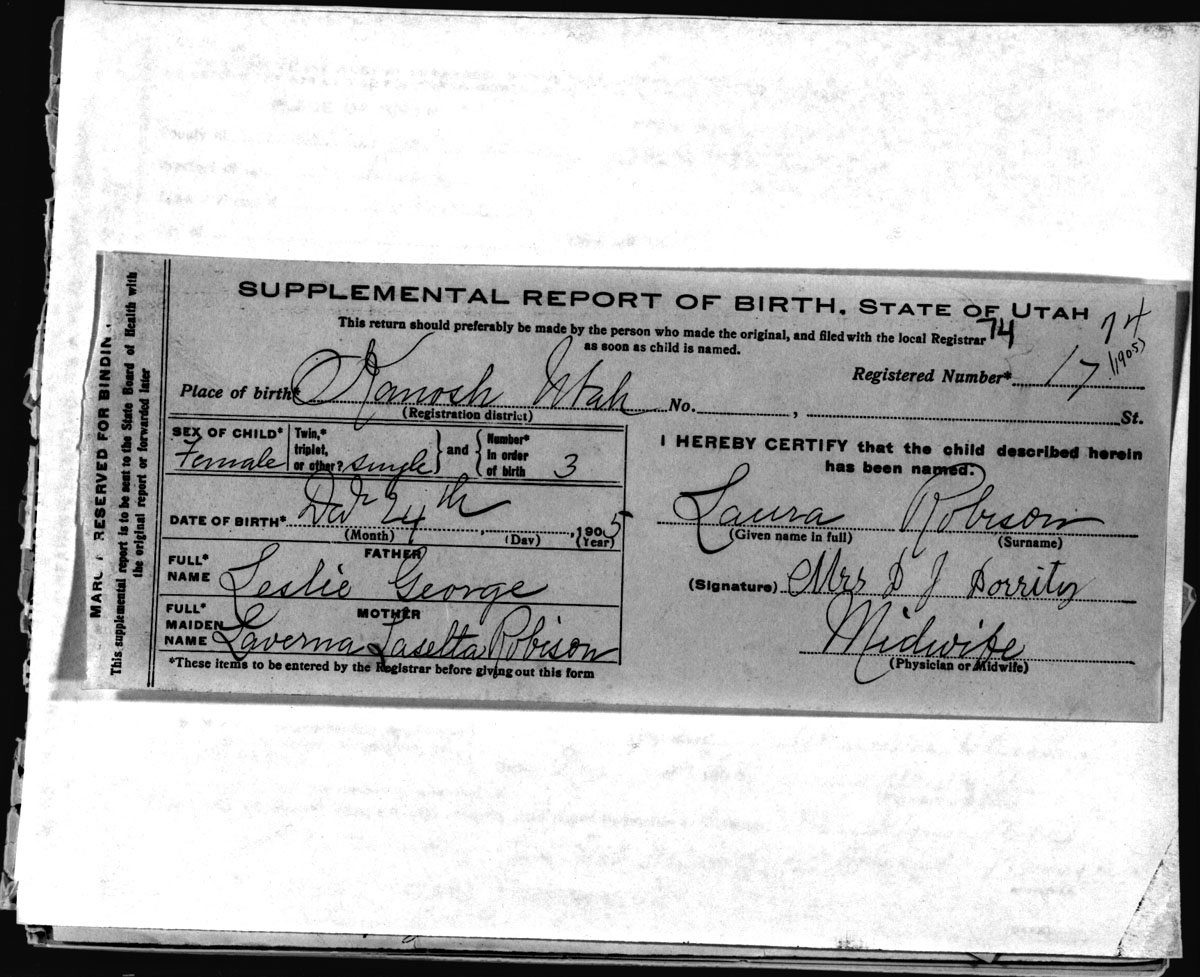 SUPPLEMENTAL REPORT OF BIRTH. STATE OF UTAH
This return should preferably be made by the person who made the original, and filed with the local Registrar
as soon as child is named.
74
74
Registered Number* 17 (1905)
Place of birth* Kanosh Utah No. , St.
(Registration district)
SEX OF CHILD* Female
Twin,* triplet, or other? single and Number* in order of birth 3
DATE OF BIRTH* 24th , , 1905
(Month) (Day) (Year)
FATHER
FULL* NAME Leslie George
MOTHER
FULL* MAIDEN NAME Laverna Laselta Robison
*These items to be entered by the Registrar before giving out this form
I HEREBY CERTIFY that the child described herein
has been named.
Laura Robison
(Given name in full) (Surname)
(Signature) Mrs D J Dorrity
Midwife
(Physician or Midwife)
RESERVED FOR BINDING
This supplemental report is to be sent to the State Board of Health with
the original report or forwarded later